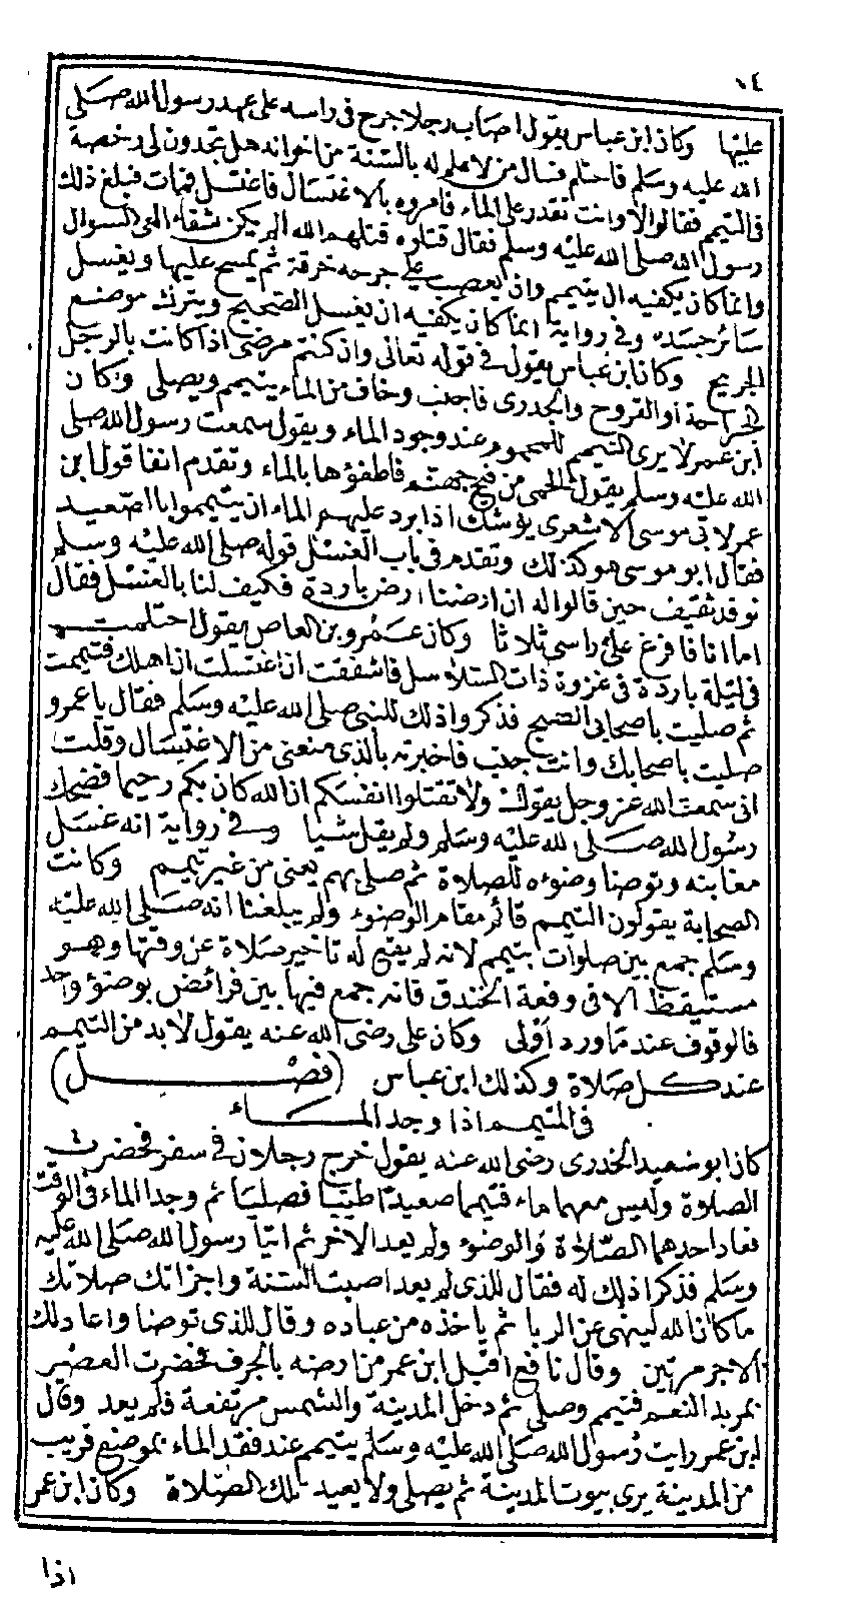 ١٤
عليها وكان ابن عباس يقول اصاب رجلا جرح في راسه على عهد رسول الله صلى
الله عليه وسلم فاحتلم فسال من لا علم له بالسنة من اخوانه هل تجدون لي رخصة
في التيمم فقالوا لا وانت تقدر على الماء فامروه بالاغتسال فاغتسل فمات فبلغ ذلك
رسول الله صلى الله عليه وسلم فقال قتلوه قتلهم الله الم يكن شفاء العي السوال
وانما كان يكفيه ان يتيمم وان يعصب على جرحه خرقة ثم يمسح عليها ويغسل
سائر جسده وفي رواية انما كان يكفيه ان يغسل الصحيح ويترك موضع
الجريح وكان ابن عباس يقول في قوله تعالى وان كنتم مرضى اذا كانت بالرجل
الجراحة او القروح والجدري فاجنب وخاف من الماء يتيمم ويصلي وكان
ابن عمر لا يرى التيمم للمحموم عند وجود الماء ويقول سمعت رسول الله صلى
الله عليه وسلم يقول الحمى من فيح جهنم فاطفؤها بالماء وتقدم انفا قول ابن
عمر لابي موسى الاشعري يوشك اذا برد عليهم الماء ان يتيمموا بالصعيد
فقال ابو موسى هو كذلك وتقدم في باب الغسل قوله صلى الله عليه وسلم
لوفد ثقيف حين قالوا له ان ارضنا ارض باردة فكيف لنا بالغسل فقال
اما انا فافرغ على راسي ثلاثا وكان عمرو بن العاص يقول احتلمت
في ليلة باردة في غزوة ذات السلاسل فاشفقت ان اغتسلت ان اهلك فتيممت
ثم صليت باصحابي الصبح فذكروا ذلك للنبي صلى الله عليه وسلم فقال يا عمرو
صليت باصحابك وانت جنب فاخبرته بالذي منعني من الاغتسال وقلت
اني سمعت الله عز وجل يقول ولا تقتلوا انفسكم ان الله كان بكم رحيما فضحك
رسول الله صلى الله عليه وسلم ولم يقل شيا وفي رواية انه غسل
مغابنه وتوضا وضوءه للصلاة ثم صلى بهم يعني من غير تيمم وكانت
الصحابة يقولون التيمم قائم مقام الوضوء ولم يبلغنا انه صلى الله عليه
وسلم جمع بين صلوات بتيمم لانه لم يقع له تاخير صلاة عن وقتها وهو
مستيقظ الا في وقعة الخندق فانه جمع فيها بين فرائض بوضوء واحد
فالوقوف عند ما ورد أولى وكان علي رضي الله عنه يقول لابد من التيمم
عند كل صلاة وكذلك ابن عباس (فصل)
في المتيمم اذا وجد الماء
كان ابو سعيد الخدري رضي الله عنه يقول خرج رجلان في سفر فحضرت
الصلاة وليس معهما ماء فتيمما صعيدا طيبا فصليا ثم وجدا الماء في الوقت
فعاد احدهما الصلاة والوضوء ولم يعد الاخر ثم اتيا رسول الله صلى الله عليه
وسلم فذكرا ذلك له فقال للذي لم يعد اصبت السنة واجزاتك صلاتك
ما كان الله لينهى عن الربا ثم ياخذه من عباده وقال للذي توضا واعاد لك
الاجر مرتين وقال نافع اقبل ابن عمر من ارضه بالجرف فحضرت العصر
بمربد النعم فتيمم وصلى ثم دخل المدينة والشمس مرتفعة فلم يعد وقال
ابن عمر رايت رسول الله صلى الله عليه وسلم يتيمم عند فقد الماء بموضع قريب
من المدينة يرى بيوت المدينة ثم يصلي ولا يعيد تلك الصلاة وكان ابن عمر
اذا